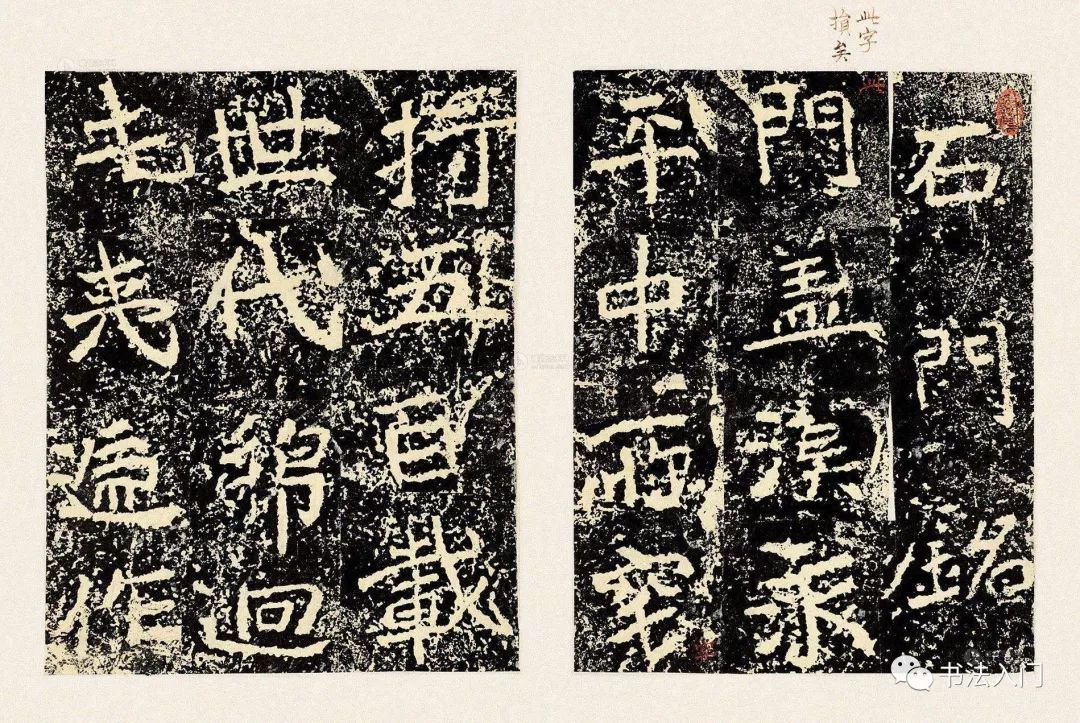 此字
損矣
石門銘
此
門蓋漢永
平中所穿
将五百載
世代綿迴
屯夷遞作
书法入门